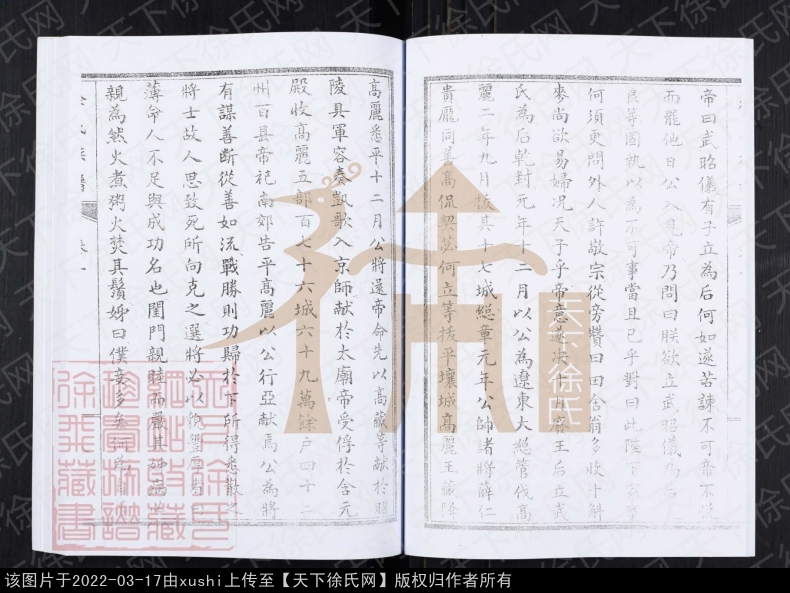 帝曰武昭儀有子立為后何如遂苦諫不可帝不悅
而罷他日公入見帝乃問曰朕欲立武昭儀為后
良等固執以為不可事當且已乎對曰此陛下家事
何須更問外人許敬宗從旁贊曰田舍翁多收十斛
麥尚欲易婦况天子乎帝意遂决十月廢王后立武
氏為后乾封元年十二月以公為遼東大總管伐高
麗二年九月拔其十七城總章元年公帥諸將薛仁
貴龐同善高侃契苾何立等拔平壤城高麗王藏降
高麗悉平十二月公將還帝命先以高藏等献於昭
陵具軍容奏凱歌入京師献於太廟帝受俘於含元
殿收高麗五部百七十六城六十九萬餘户四十二
州百县帝祀南郊告平高麗以公行亞献焉公為將
有謀善断從善如流戰勝則功歸於下所得悉散之
將士故人思致死所向克之選將必以貌豐厚者
薄命人不足與成功名也閨門親睦而嚴其姊
親為然火煮粥火焚其鬚姊曰僕妾多矣何
徐氏族譜
卷一
天下徐氏
天下徐氏网
徐飛藏書
该图片于2022-03-17由xushi上传至【天下徐氏网】版权归作者所有